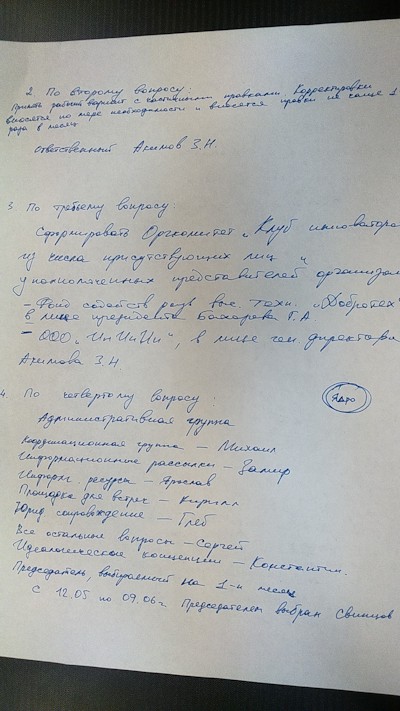 2. По второму вопросу:
Принять рабочий вариант с частичными правками. Корректировки
вносятся по мере необходимости и вносятся правки не чаще 1
раза в месяц
Ответственный Акимов З.Н.
3 По третьему вопросу:
Сформировать Оргкомитет „Клуб инноватора
из числа присутствующих лиц "
уполномоченных представителей организа
- Фонд содейств разв выс. техн. „Добротех"
в лице президента Бахарева Г.А
- ООО „ИнИнИи", в лице ген директора
Акимова З.Н.
4. По четвертому вопросу:
Ядро
Административная группа
Координационная группа – Михаил
Информационные рассылки – Замир
Информ. ресурсы – Ярослав
Площадка для встреч – Кирилл
Юрид сопровождение – Глеб
Все остальные вопросы – Сергей
Идеологические концепции – Константин.
Председатель, выбираемый на 1-н месяц
С 12.05 по 09.06г. Председателем выбран Свинцов